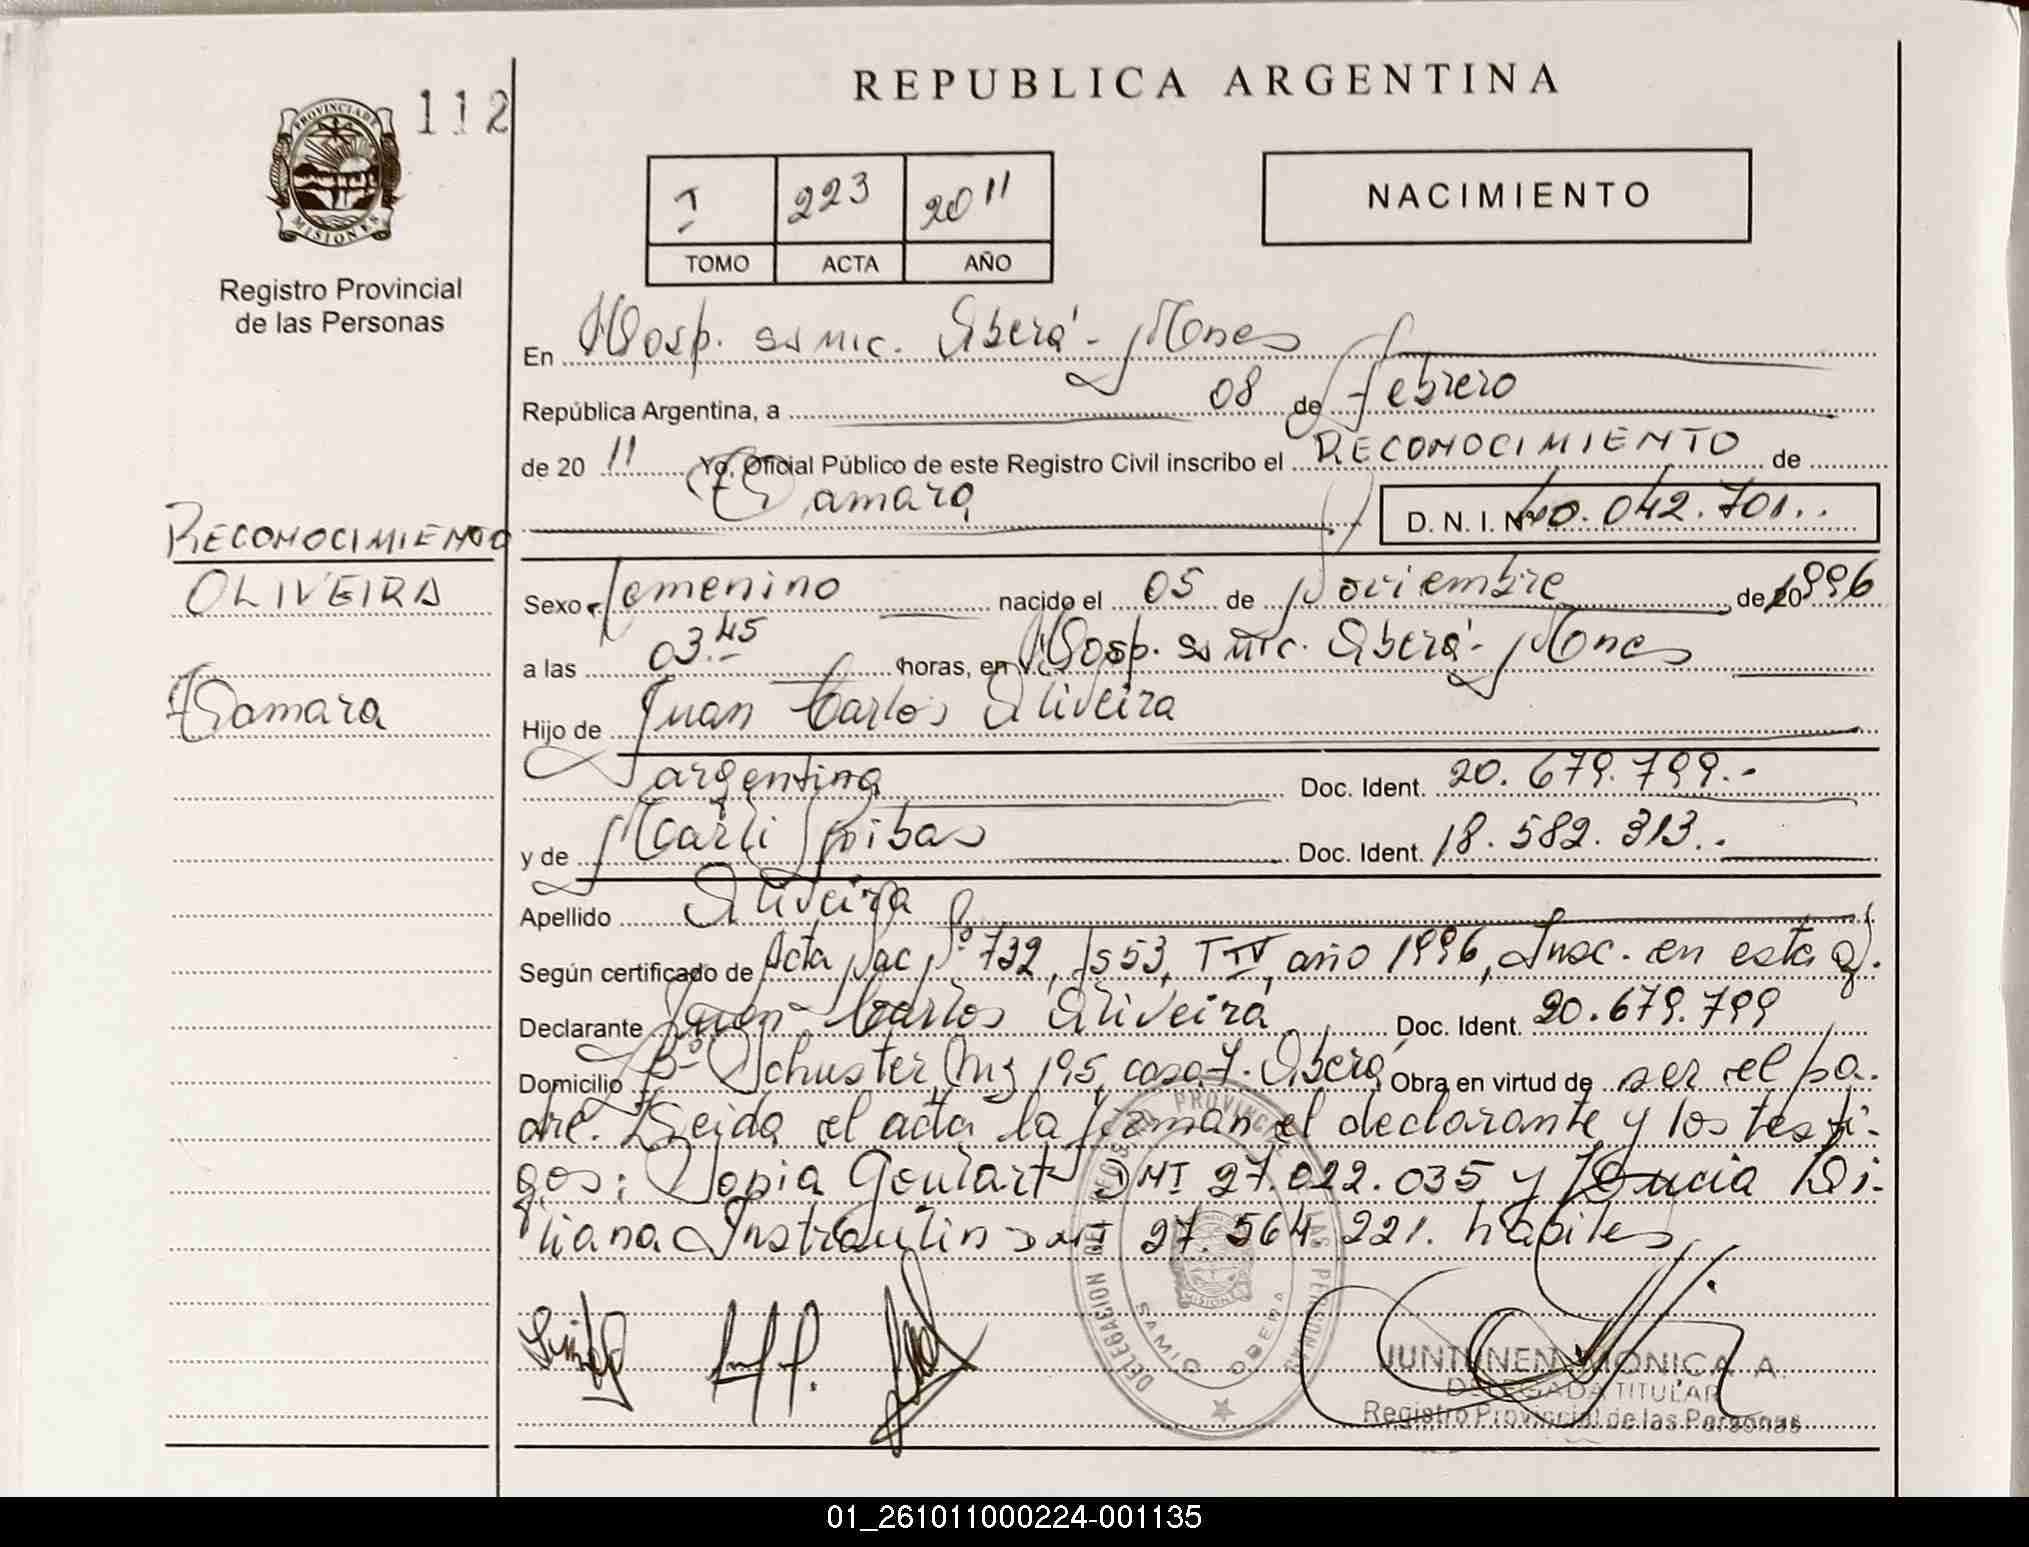 REPUBLICA ARGENTINA
112
PROVINCIA DE
MISIONES
Registro Provincial
de las Personas
I 223 2011
TOMO ACTA AÑO
NACIMIENTO
En Hosp. Samic. Oberá - Mones
República Argentina, a 08 de Febrero
de 20 11 Yo, Oficial Público de este Registro Civil inscribo el RECONOCIMIENTO de
Tamara D. N. I. Nº 40.042.701..
RECONOCIMIENTO
OLIVEIRA
Tamara
Sexo femenino nacido el 05 de Noviembre de 20 1996
a las 03.45 horas, en Hosp. Samic. Oberá - Mones
Hijo de Juan Carlos Oliveira
argentina Doc. Ident. 20.679.799.-
y de Marli Ribas Doc. Ident. 18.582.313..
Apellido Oliveira
Según certificado de Acta Nac Nº 732, Fs 53, T IV, año 1996, Insc. en esta
Declarante Juan Carlos Oliveira Doc. Ident. 20.679.799
Domicilio Bº Schuster Mz 195, casa 7. Oberá Obra en virtud de ser el pa-
dre. Leida el acta la firman el declarante y los testi-
gos: Sonia Goulart DNI 27.022.035 y Lucia Li-
liana Instraulin DNI 27.564.221. habiles
DELEGACION DEL REGISTRO PROVINCIAL DE LAS PERSONAS
SAMIC OBERA
MISIONES
JUNTUNEN MONICA A.
DELEGADA TITULAR
Registro Provincial de las Personas
01_261011000224-001135